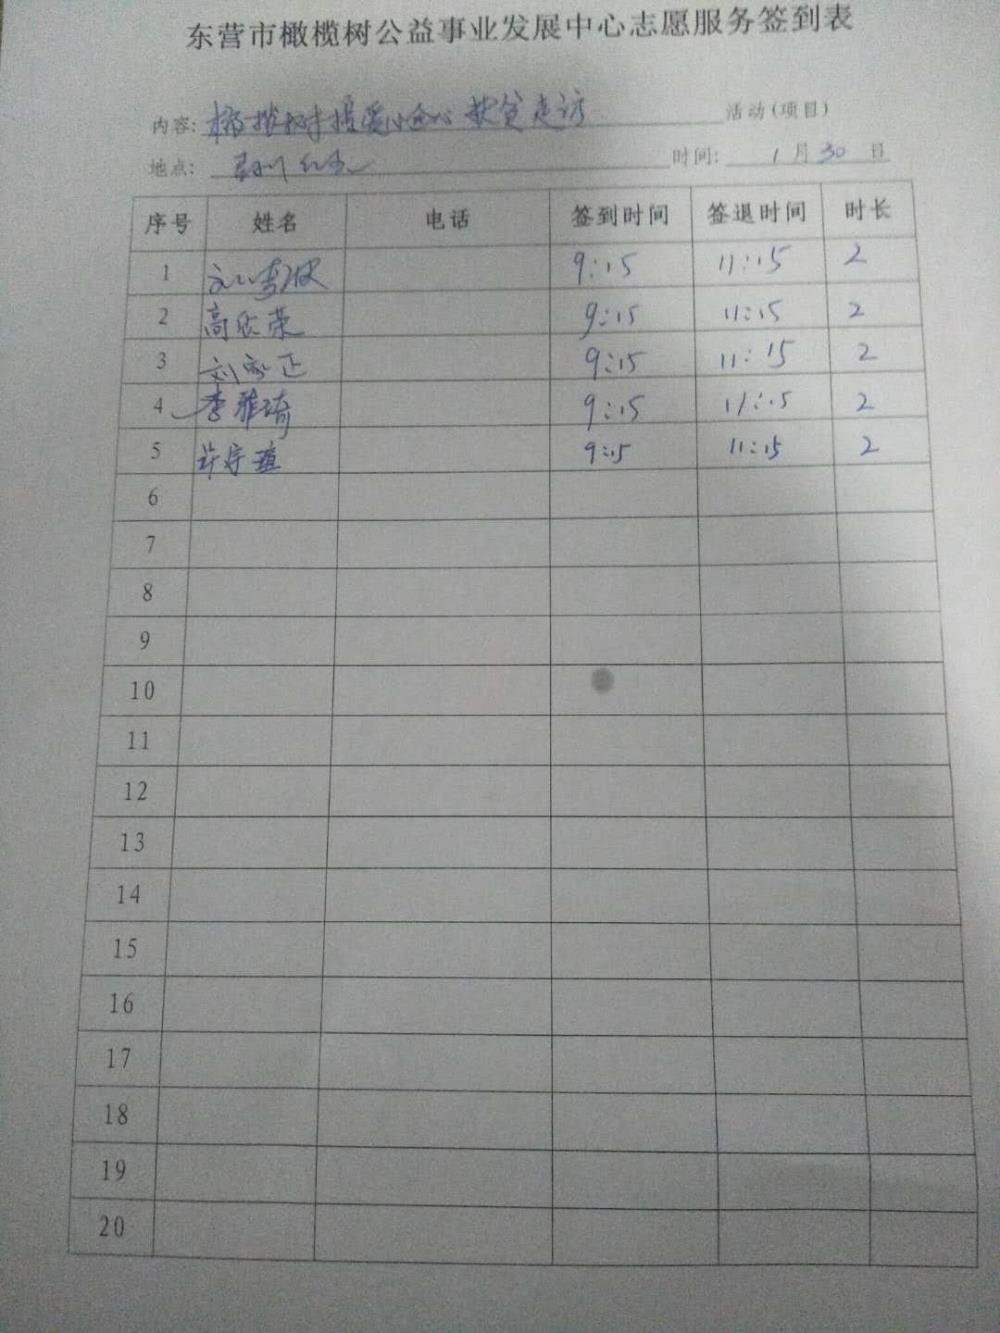 东营市橄榄树公益事业发展中心志愿服务签到表
内容: 橄榄树 爱心 扶贫走访 活动(项目)
地点: 时间: 1 月 30 日
序号 姓名 电话 签到时间 签退时间 时长
1 9:15 11:15 2
2 高欣荣 9:15 11:15 2
3 刘家正 9:15 11:15 2
4 李雅琦 9:15 11:15 2
5 许宇瑄 9:15 11:15 2
6
7
8
9
10
11
12
13
14
15
16
17
18
19
20